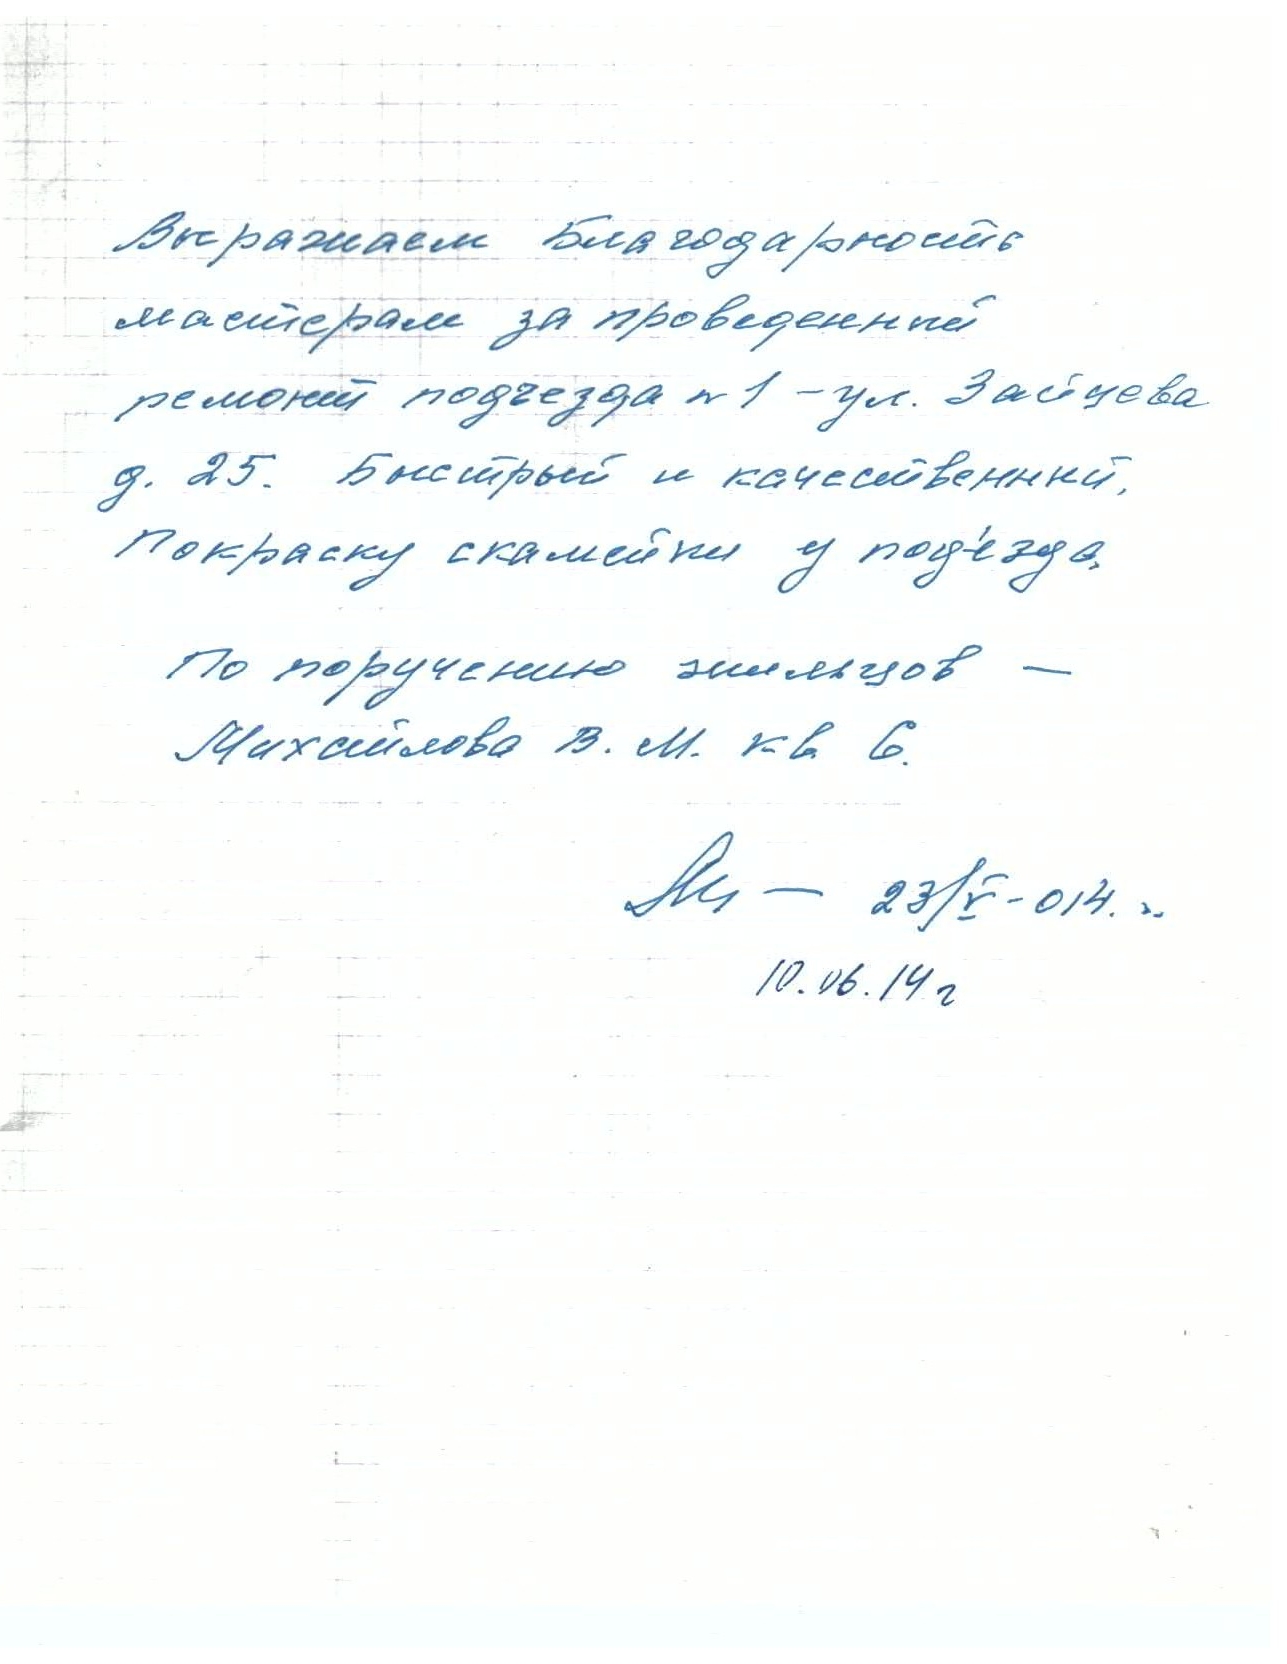 Выражаем Благодарность
мастерам за проведенный
ремонт подъезда №1 - ул. Зайцева
д. 25. Быстрый и качественный.
Покраску скамейки у под'езда.
По поручению жильцов —
Михайлова В. М. кв. 6.
— 23/V - 014 г.
10.06.14 г